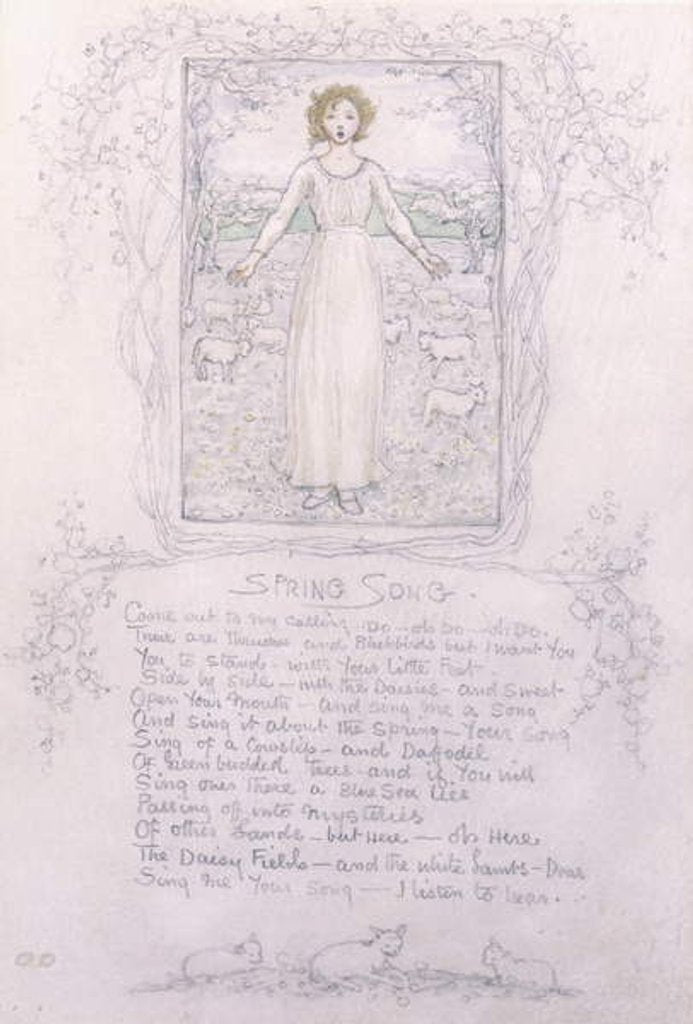 SPRING SONG.
Come out to my calling, Do - oh Do - oh Do.
There are Thrushes and Blackbirds but I want You
You to stand - with Your Little Feet
Side by side - with the Daisies - and Sweet
Open Your Mouth - and sing me a Song
And Sing it about the Spring - Your Song
Sing of a Cowslip - and Daffodil
Of Green budded Trees - and if You will
Sing over There a Blue Sea lies
Passing off into Mysteries
Of other Lands - but Here - oh Here
The Daisy Fields - and the white Lambs - Dear
Sing me Your Song - I listen to hear.